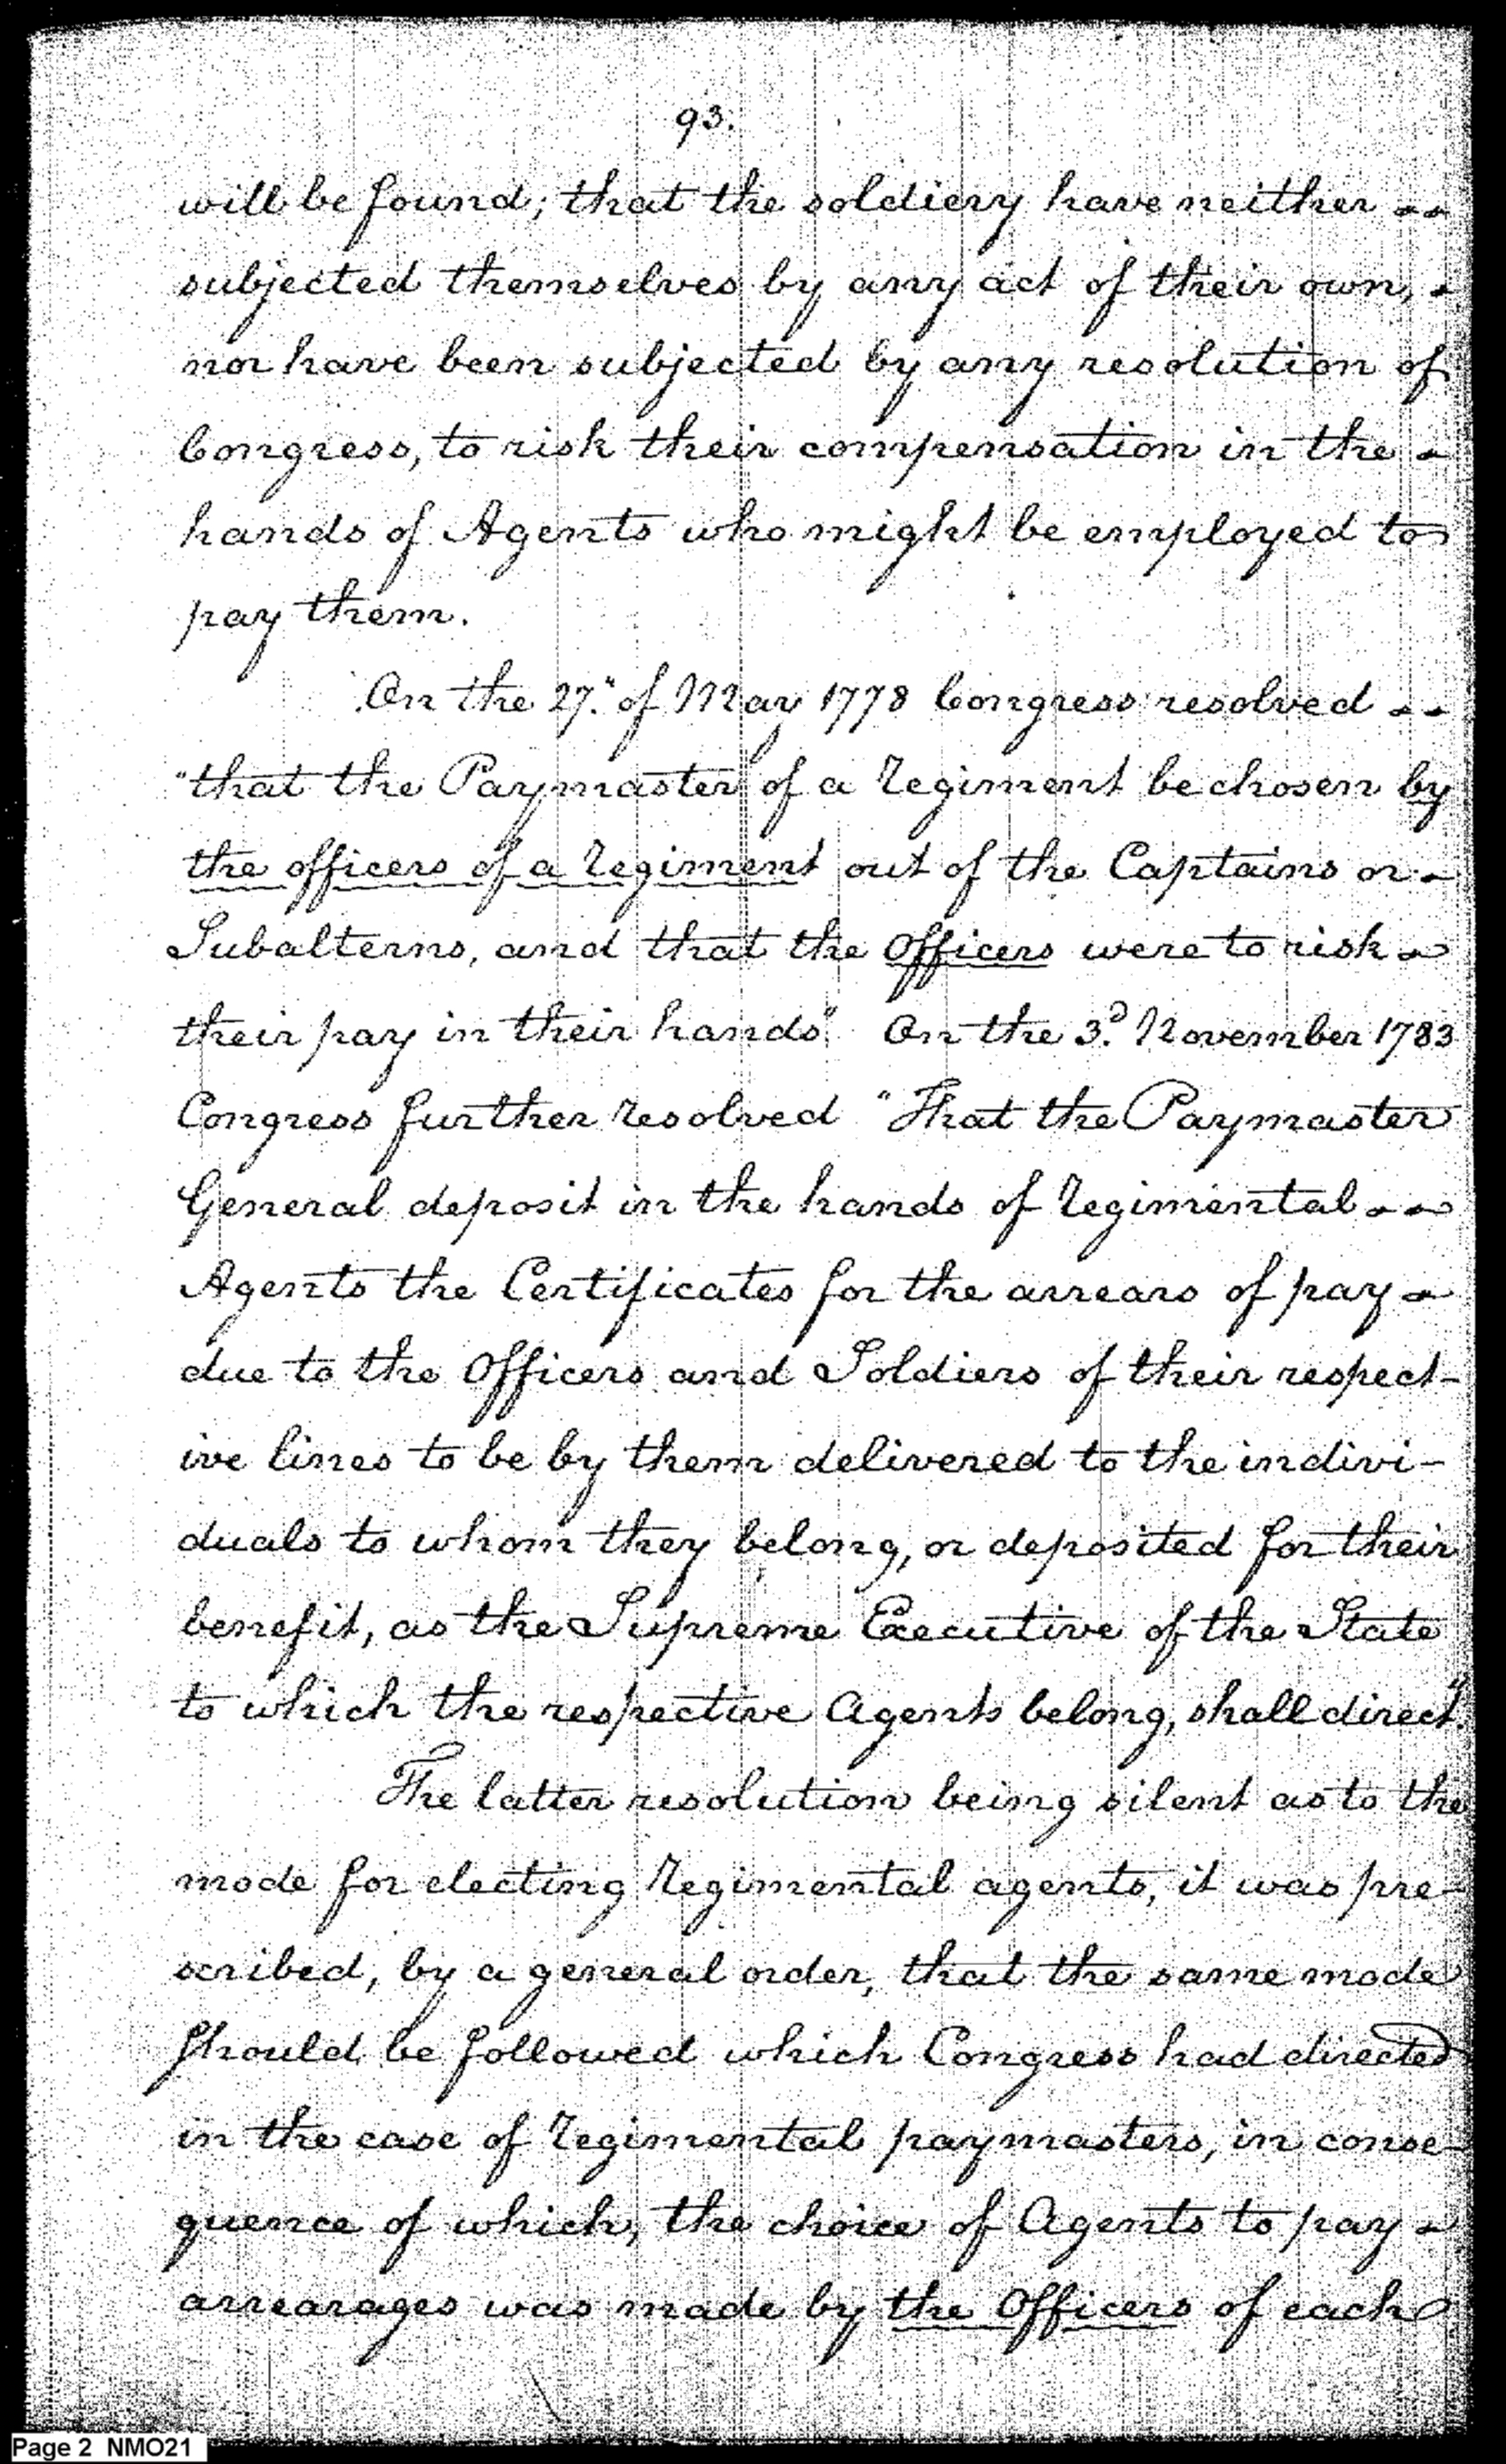 93.
will be found; that the soldiery have neither
subjected themselves by any act of their own,
nor have been subjected by any resolution of
Congress, to risk their compensation in the
hands of Agents who might be employed to
pay them.
On the 27." of May 1778 Congress resolved
"that the Paymaster of a regiment be chosen by
the officers of a regiment out of the Captains or
Subalterns, and that the Officers were to risk
their pay in their hands". On the 3.d November 1783
Congress further resolved "That the Paymaster
General deposit in the hands of regimental
Agents the Certificates for the arrears of pay
due to the Officers and Soldiers of their respect-
ive lines to be by them delivered to the indivi-
duals to whom they belong, or deposited for their
benefit, as the Supreme Executive of the State
to which the respective Agents belong, shall direct."
The latter resolution being silent as to the
mode for electing regimental agents, it was pre-
scribed, by a general order, that the same mode
should be followed which Congress had directed
in the case of regimental paymasters, in conse-
quence of which, the choice of Agents to pay
arrearages was made by the Officers of each
Page 2 NMO21